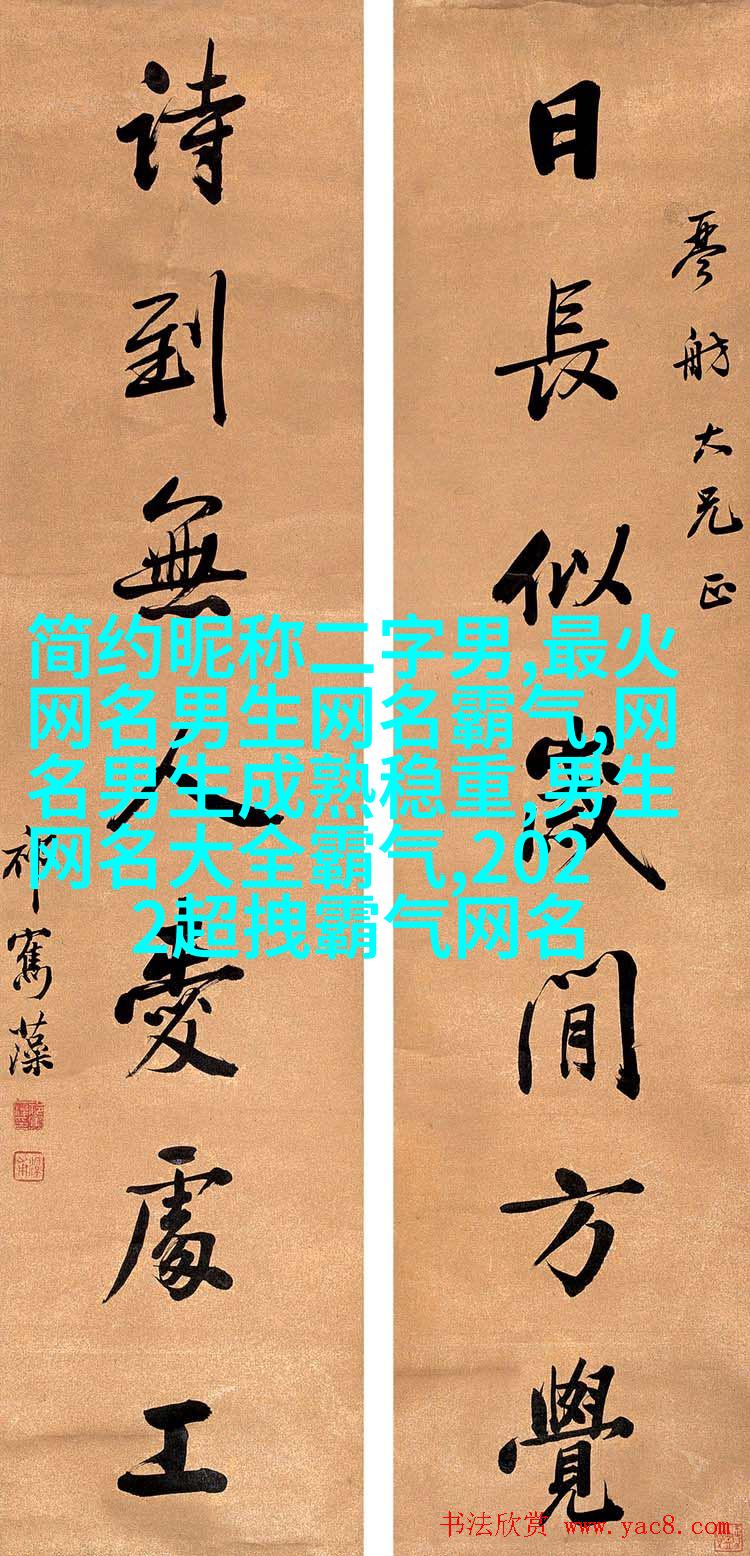 琴舫大兄正
日長似歲閒方覺
詩到無人愛處工
祁寯藻
简约昵称二字男,最火
网名男生网名霸气,网
名男生成熟稳重,男生
网名大全霸气,202
2超拽霸气网名
书法欣赏 www.yac8.com